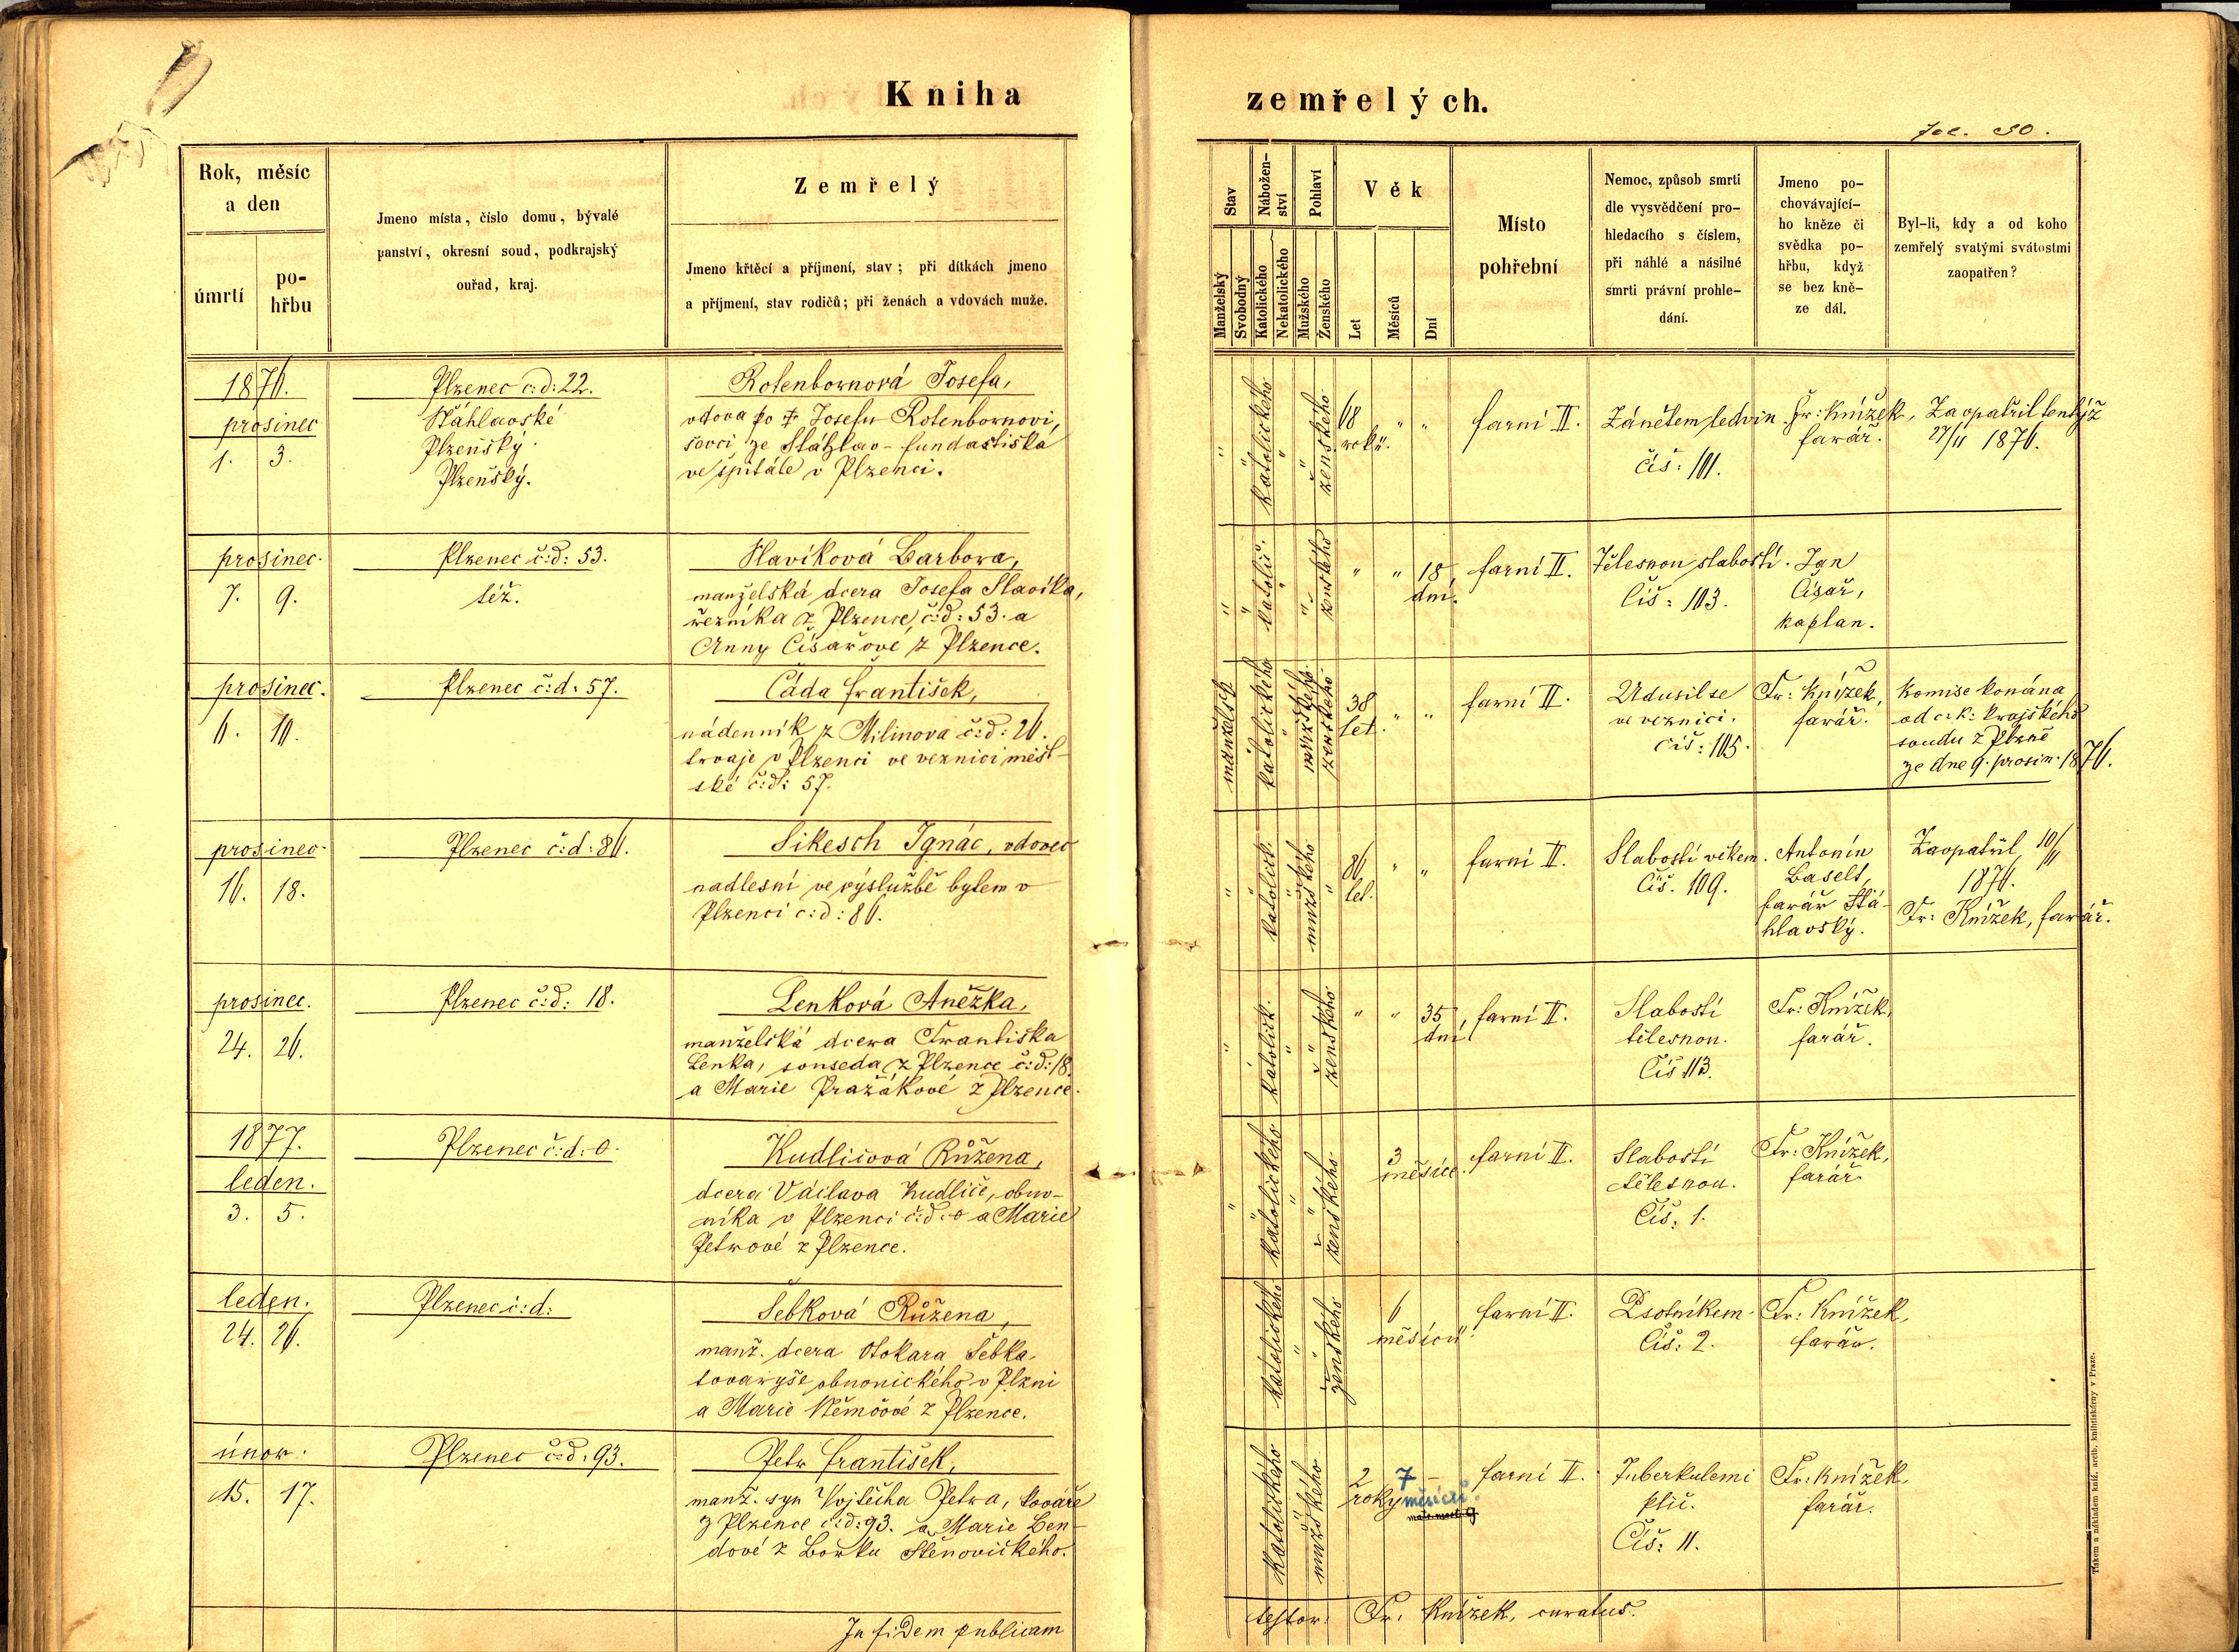 Kniha
zemřelých.
Fol. 90.
Rok, měsíc
a den
úmrtí
po-
hřbu
Jmeno místa, číslo domu, bývalé
panství, okresní soud, podkrajský
ouřad, kraj.
Zemřelý
Jmeno křtěcí a příjmení, stav; při dítkách jmeno
a příjmení, stav rodičů; při ženách a vdovách muže.
Stav
Manželský
Svobodný
Nábožen-
ství
Katolického
Nekatolického
Pohlaví
Mužského
Ženského
Věk
Let
Měsíců
Dní
Místo
pohřební
Nemoc, způsob smrti
dle vysvědčení pro-
hledacího s číslem,
při náhlé a násilné
smrti právní prohle-
dání.
Jmeno po-
chovávající-
ho kněze či
svědka po-
hřbu, když
se bez kně-
ze dál.
Byl-li, kdy a od koho
zemřelý svatými svátostmi
zaopatřen?
1876.
prosinec
1. 3.
Plzenec č:d: 22.
Štáhlavské
Plzeňský.
Plzeňský.
Rotenbornová Josefa,
vdova po † Josefu Rotenbornovi,
ševci ze Štáhlav - fundastiska
ve špitále v Plzenci.
" " katolického " " ženského
68
roků. " "
farní II.
Zánětem ledvin.
čís: 101.
Fr: Knížek,
farář.
Zaopatřil tentýž
27/11 1876.
prosinec.
7. 9.
Plzenec č:d: 53.
též.
Slavíková Barbora,
manželská dcera Josefa Slavíka,
řezníka z Plzence, č:d: 53. a
Anny Císařové z Plzence.
" " katolic. " " ženského
" " 18
dní.
farní II.
Tělesnou slabostí.
Čís: 103.
Ign
Císař,
kaplan.
prosinec.
6. 10.
Plzenec č:d: 57.
Čáda František,
nádenník z Milinova č:d: 26.
trvaje v Plzenci ve věznici měst-
ské č:d: 57.
manželsk " katolického " mužského
38
let. " "
farní II.
Udusil se
ve věznici.
čís: 105.
Fr: Knížek,
farář.
Komise konána
od c.k: krajského
soudu z Plzně
ze dne 9. prosin. 1876.
prosinec.
16. 18.
Plzenec č:d: 86.
Sikesch Ignác, vdovec
nadlesní ve výslužbě bytem v
Plzenci č:d: 86.
" " katolick. " mužského "
86
let. " "
farní II.
Slabostí věkem.
Čís. 109.
Antonín
Baselt,
farář Štá-
hlavský.
Zaopatřil 10/11
1876.
Fr: Knížek, farář.
prosinec.
24. 26.
Plzenec č:d: 18.
Lenková Anežka,
manželská dcera Františka
Lenka, souseda z Plzence č:d: 18.
a Marie Pražákové z Plzence.
" " katolick. " " ženského
" " 35
dní,
farní II.
Slabostí
tělesnou.
Čís 113.
Fr: Knížek,
farář.
1877.
leden.
3. 5.
Plzenec č:d: 0.
Kudličová Růžena,
dcera Václava Kudliče, obuv-
níka v Plzenci č:d: 0 a Marie
Petrové z Plzence.
" " katolického " " ženského
3
měsíce.
farní II.
Slabostí
tělesnou.
Čís: 1.
Fr: Knížek,
farář
leden.
24. 26.
Plzenec č:d:
Šebková Růžena,
manž. dcera Otokara Šebka
tovaryše obuvnického v Plzni
a Marie Němcové z Plzence.
katolického " " ženského
6
měsíců.
farní II.
Psotníkem.
Čís: 2.
Fr: Knížek,
farář.
únor.
15. 17.
Plzenec č:d: 93.
Petr František,
manž. syn Vojtěcha Petra, kováře
z Plzence č:d: 93. a Marie Ben-
dové z Borku Štěnovického.
katolického " mužského
2 7 –
roky měsíců.
farní II.
Tuberkulemi
plic.
Čís: 11.
Fr: Knížek,
farář.
In fidem publicam
testor: Fr. Knížek, curatus.
Tiskem a nákladem kníž. arcib. knihtiskárny v Praze.